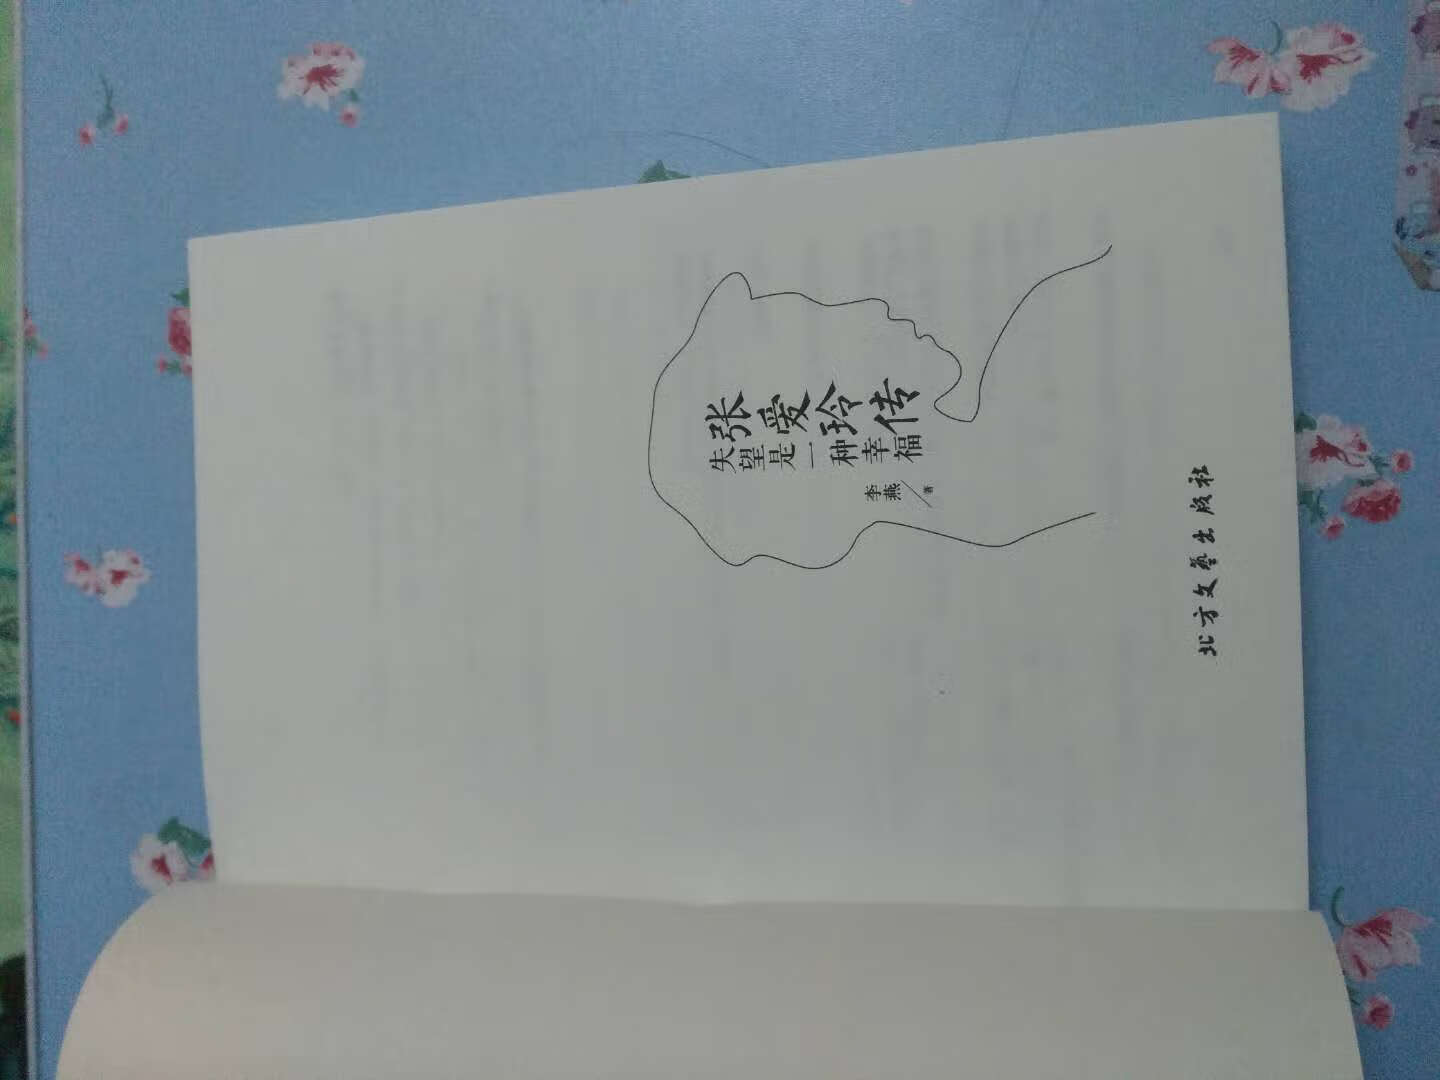 张爱玲传
失望是一种幸福
李燕／著
北方文藝出版社